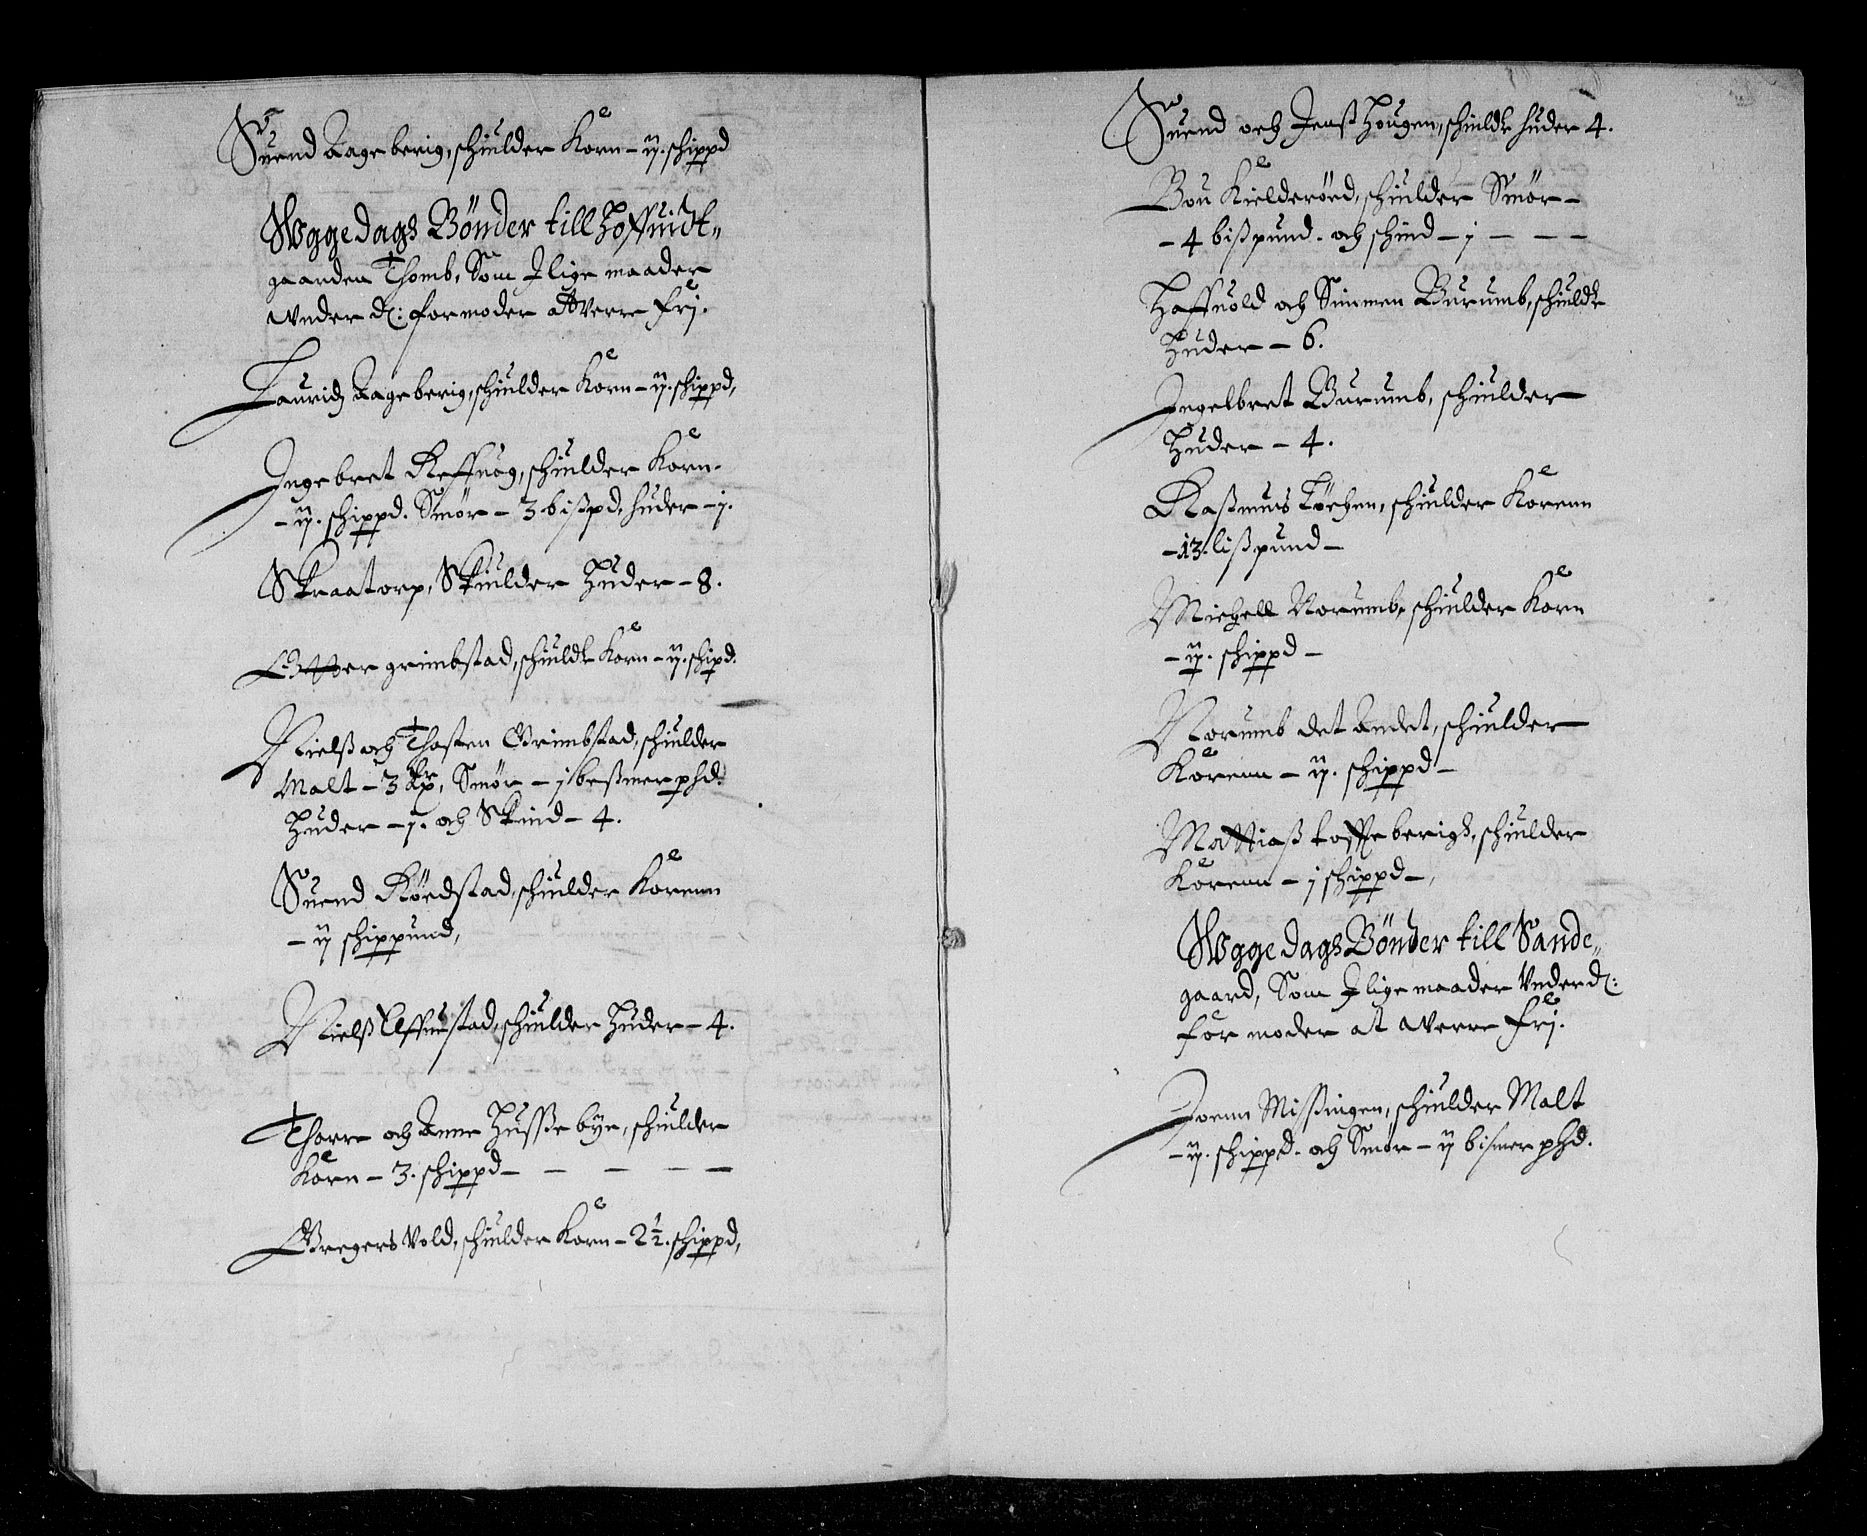 Suend Aageberig, schiulder Korn - ij. schippd
Wggedags Bønder till Hoffuidt„
gaarden Thomb, Som J lige maader
wnder d: formoder at verre frj.
Lauridz Aageberig, schiulder Korn - ij. schippd,
Ingebret Reffnøg, schiulder Korn -
- ij. schippd. Smør - 3 bißpd, huder - j.
Skraatorp, Skiulder Huder - 8.
Otter grimbstad, schiuldr Korn - ij. schipd.
Nielß och Thosten Grimbstad, schiulder
Malt - 3 , Smør - j beßmer phd.
Huder - j. och Skind - 4.
Suend Røedstad, schiulder Korenn
- ij schippund,
Nielß Effuestad, schiulder Huder - 4.
Thorre och Anne Husße bye, schiulder
Korn - 3. schippd - - - - -
Gregers Vold, schiulder Korn - 2½. schippd,
Suend och Jenß Hougen, schiuldr huder 4.
Bou Kielderøed, schiulder Smør -
- 4 bißpund. och schind - j - - -
Haffuold och Simmen Burumb, schiuldr
Huder - 6.
Ingelbret Burumb, schiulder
Huder - 4.
Raßmus Tøchen, schiulder Korenn
- 13. lißpund -
Michell Norumb, schiulder Korn
- ij. schippd -
Norumb det Andet, schiulder
Korenn - ij. schippd -
Mattiaß toffte berigs, schiulder
Korenn - j schippd -,
Wggedags Bønder till Sande„
gaard, Som J lige maader Vnder d:
for moder at werre frj.
Joenn Mißingen, schiulder Malt
- ij. schippd. och Smør - ij bismer phd.